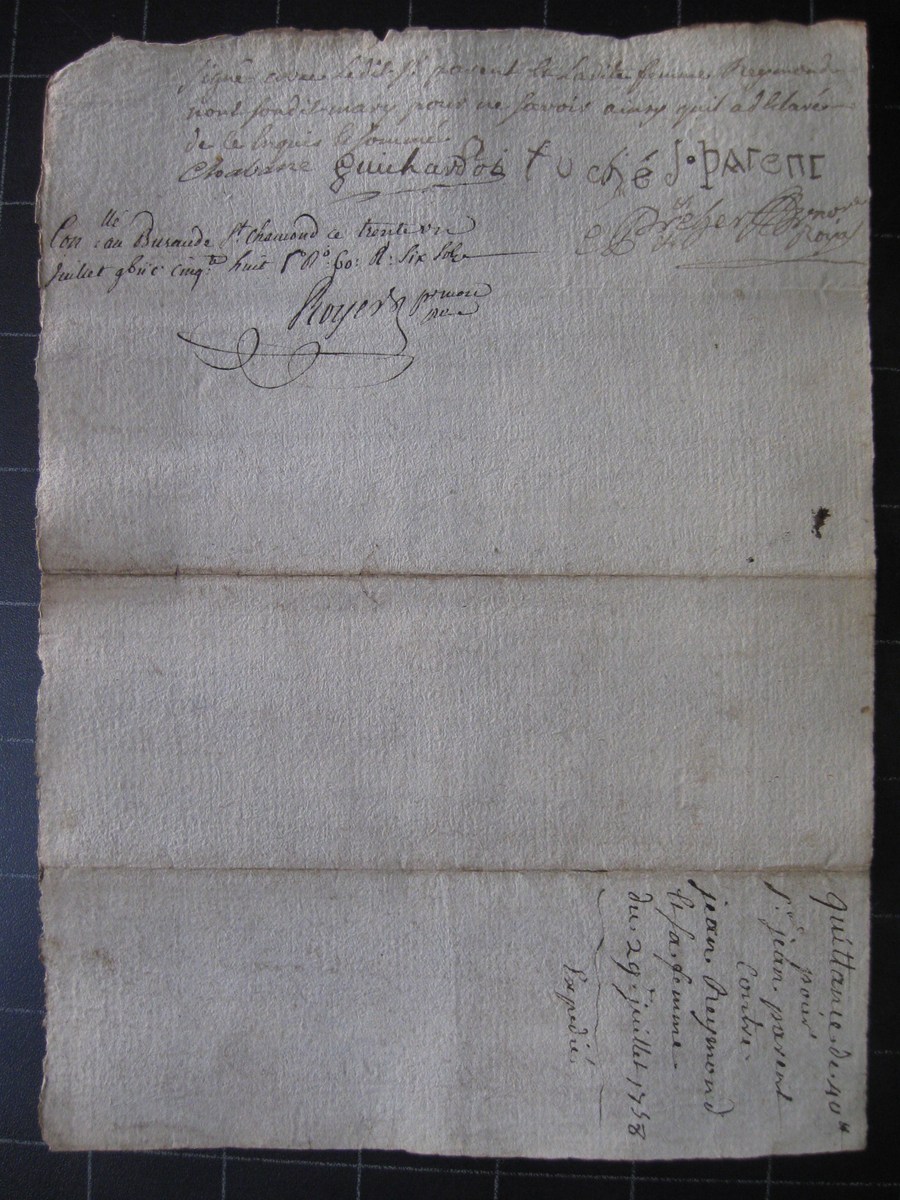 signé avec ledit Sr parent et ladite femme Reymond
non sondit mary pour ne savoir ainsy quil a déclaré
de ce enquis et sommé
Chabane Guichardot
J. Parent
Royal
Conllé au Bureau de St Chamond ce trente un
Juillet cinqte huit Six sols
Royer
quittance de 40#
pour
Sr jean parent
Contre
jean Reymond
et sa femme
du 29e juillet 1758
Expédié